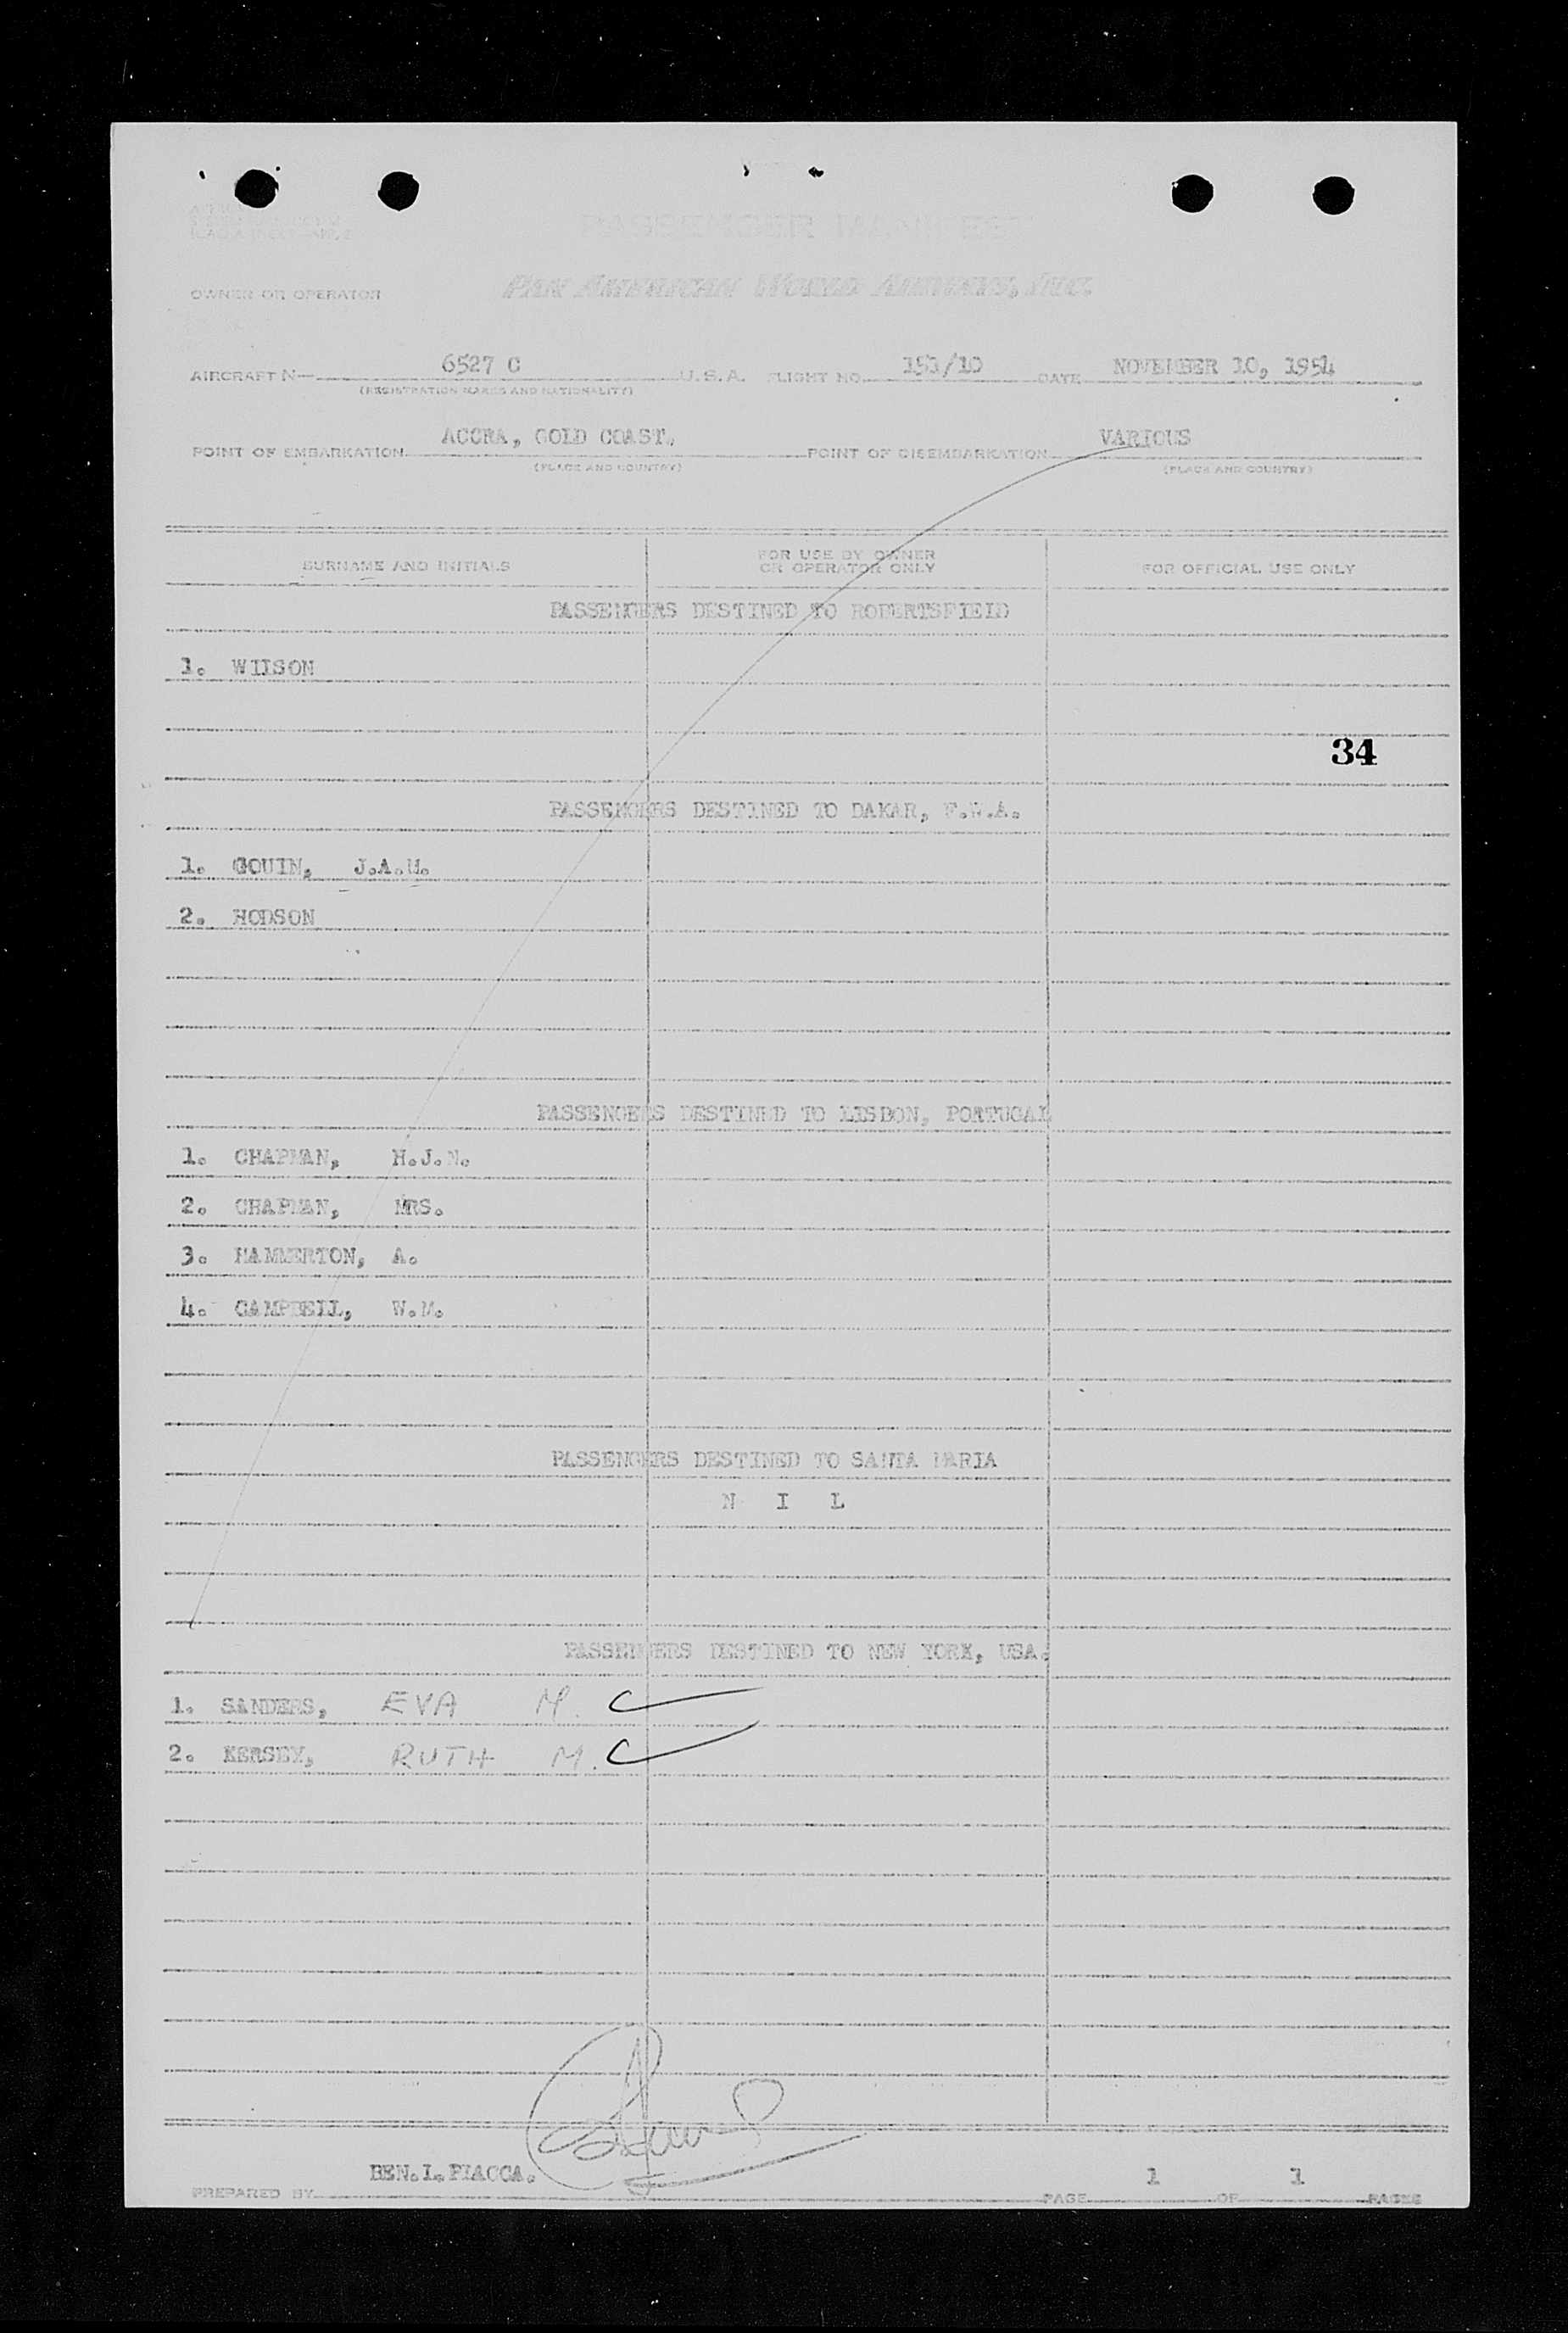 PASSENGER MANIFEST
OWNER OR OPERATOR PAN AMERICAN WORLD AIRWAYS, INC.
AIRCRAFT N— 6527 C U.S.A. FLIGHT NO. 151/10 DATE NOVEMBER 10, 1954
(REGISTRATION MARKS AND NATIONALITY)
POINT OF EMBARKATION ACCRA, GOLD COAST. POINT OF DISEMBARKATION VARIOUS
(PLACE AND COUNTRY) (PLACE AND COUNTRY)
SURNAME AND INITIALS FOR USE BY OWNER OR OPERATOR ONLY FOR OFFICIAL USE ONLY
PASSENGERS DESTINED TO ROBERTSFIELD
1. WILSON
34
PASSENGERS DESTINED TO DAKAR, F.W.A.
1. GOUIN, J.A.M.
2. HODSON
PASSENGERS DESTINED TO LISBON, PORTUGAL
1. CHAPMAN, H.J.N.
2. CHAPMAN, MRS.
3. HAMMERTON, A.
4. CAMPBELL, W.M.
PASSENGERS DESTINED TO SANTA MARIA
N I L
PASSENGERS DESTINED TO NEW YORK, USA.
1. SANDERS, EVA M.
2. KERSEY, RUTH M.
BEN.I.PIACCA.
PREPARED BY PAGE 1 OF 1 PAGES